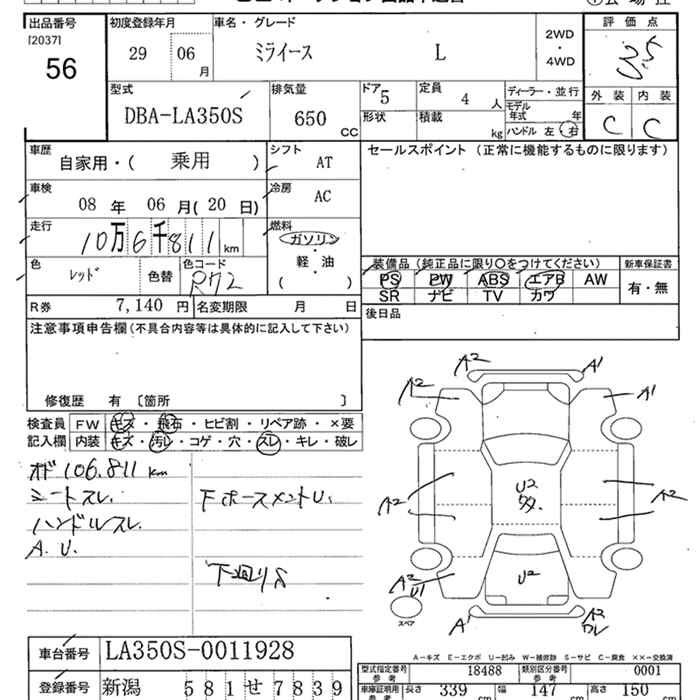 出品番号 初度登録年月 車名・グレード 評価点
[2037] 56 29 06月 ミライース L 2WD・4WD 3.5
型式 排気量 ドア 定員 ディーラー・並行 外装 内装
DBA-LA350S 650 CC 5 4人 モデル年式 年 C C
形状 積載 kg ハンドル 左 右
車歴 自家用・( 乗用 ) シフト AT セールスポイント (正常に機能するものに限ります)
車検 08年 06月(20日) 冷房 AC
走行 10万6千811km 燃料 ガソリン
軽・油
( )
色 レッド 色替 色コード R72 装備品 (純正品に限り○をつけてください) 新車保証書
PS PW ABS エアB AW 有・無
SR ナビ TV カワ
R券 7,140円 名変期限 月 日
後日品
注意事項申告欄(不具合内容等は具体的に記入して下さい)
修復歴 有 〔箇所 〕
検査員 FW キズ・飛石・ヒビ割・リペア跡・×要
記入欄 内装 キズ・汚レ・コゲ・穴・スレ・キレ・破レ
オド106.811km
シートスレ.
ハンドルスレ.
A.U.
下ホースメントU.
下廻りS
A2 A1
A2 A1
U2
タタ.
A2 A2
U2
A2
U1
スペア A1 A2
ワレ
A-キズ E-エクボ U-凹み W-補修跡 S-サビ C-腐食 ××-交換済
車台番号 LA350S-0011928
型式指定番号 参考 18488 類別区分番号 参考 0001
登録番号 新潟 581 せ 7839
車庫証明用 参考 長さ 339 cm 幅 147 cm 高さ 150 cm